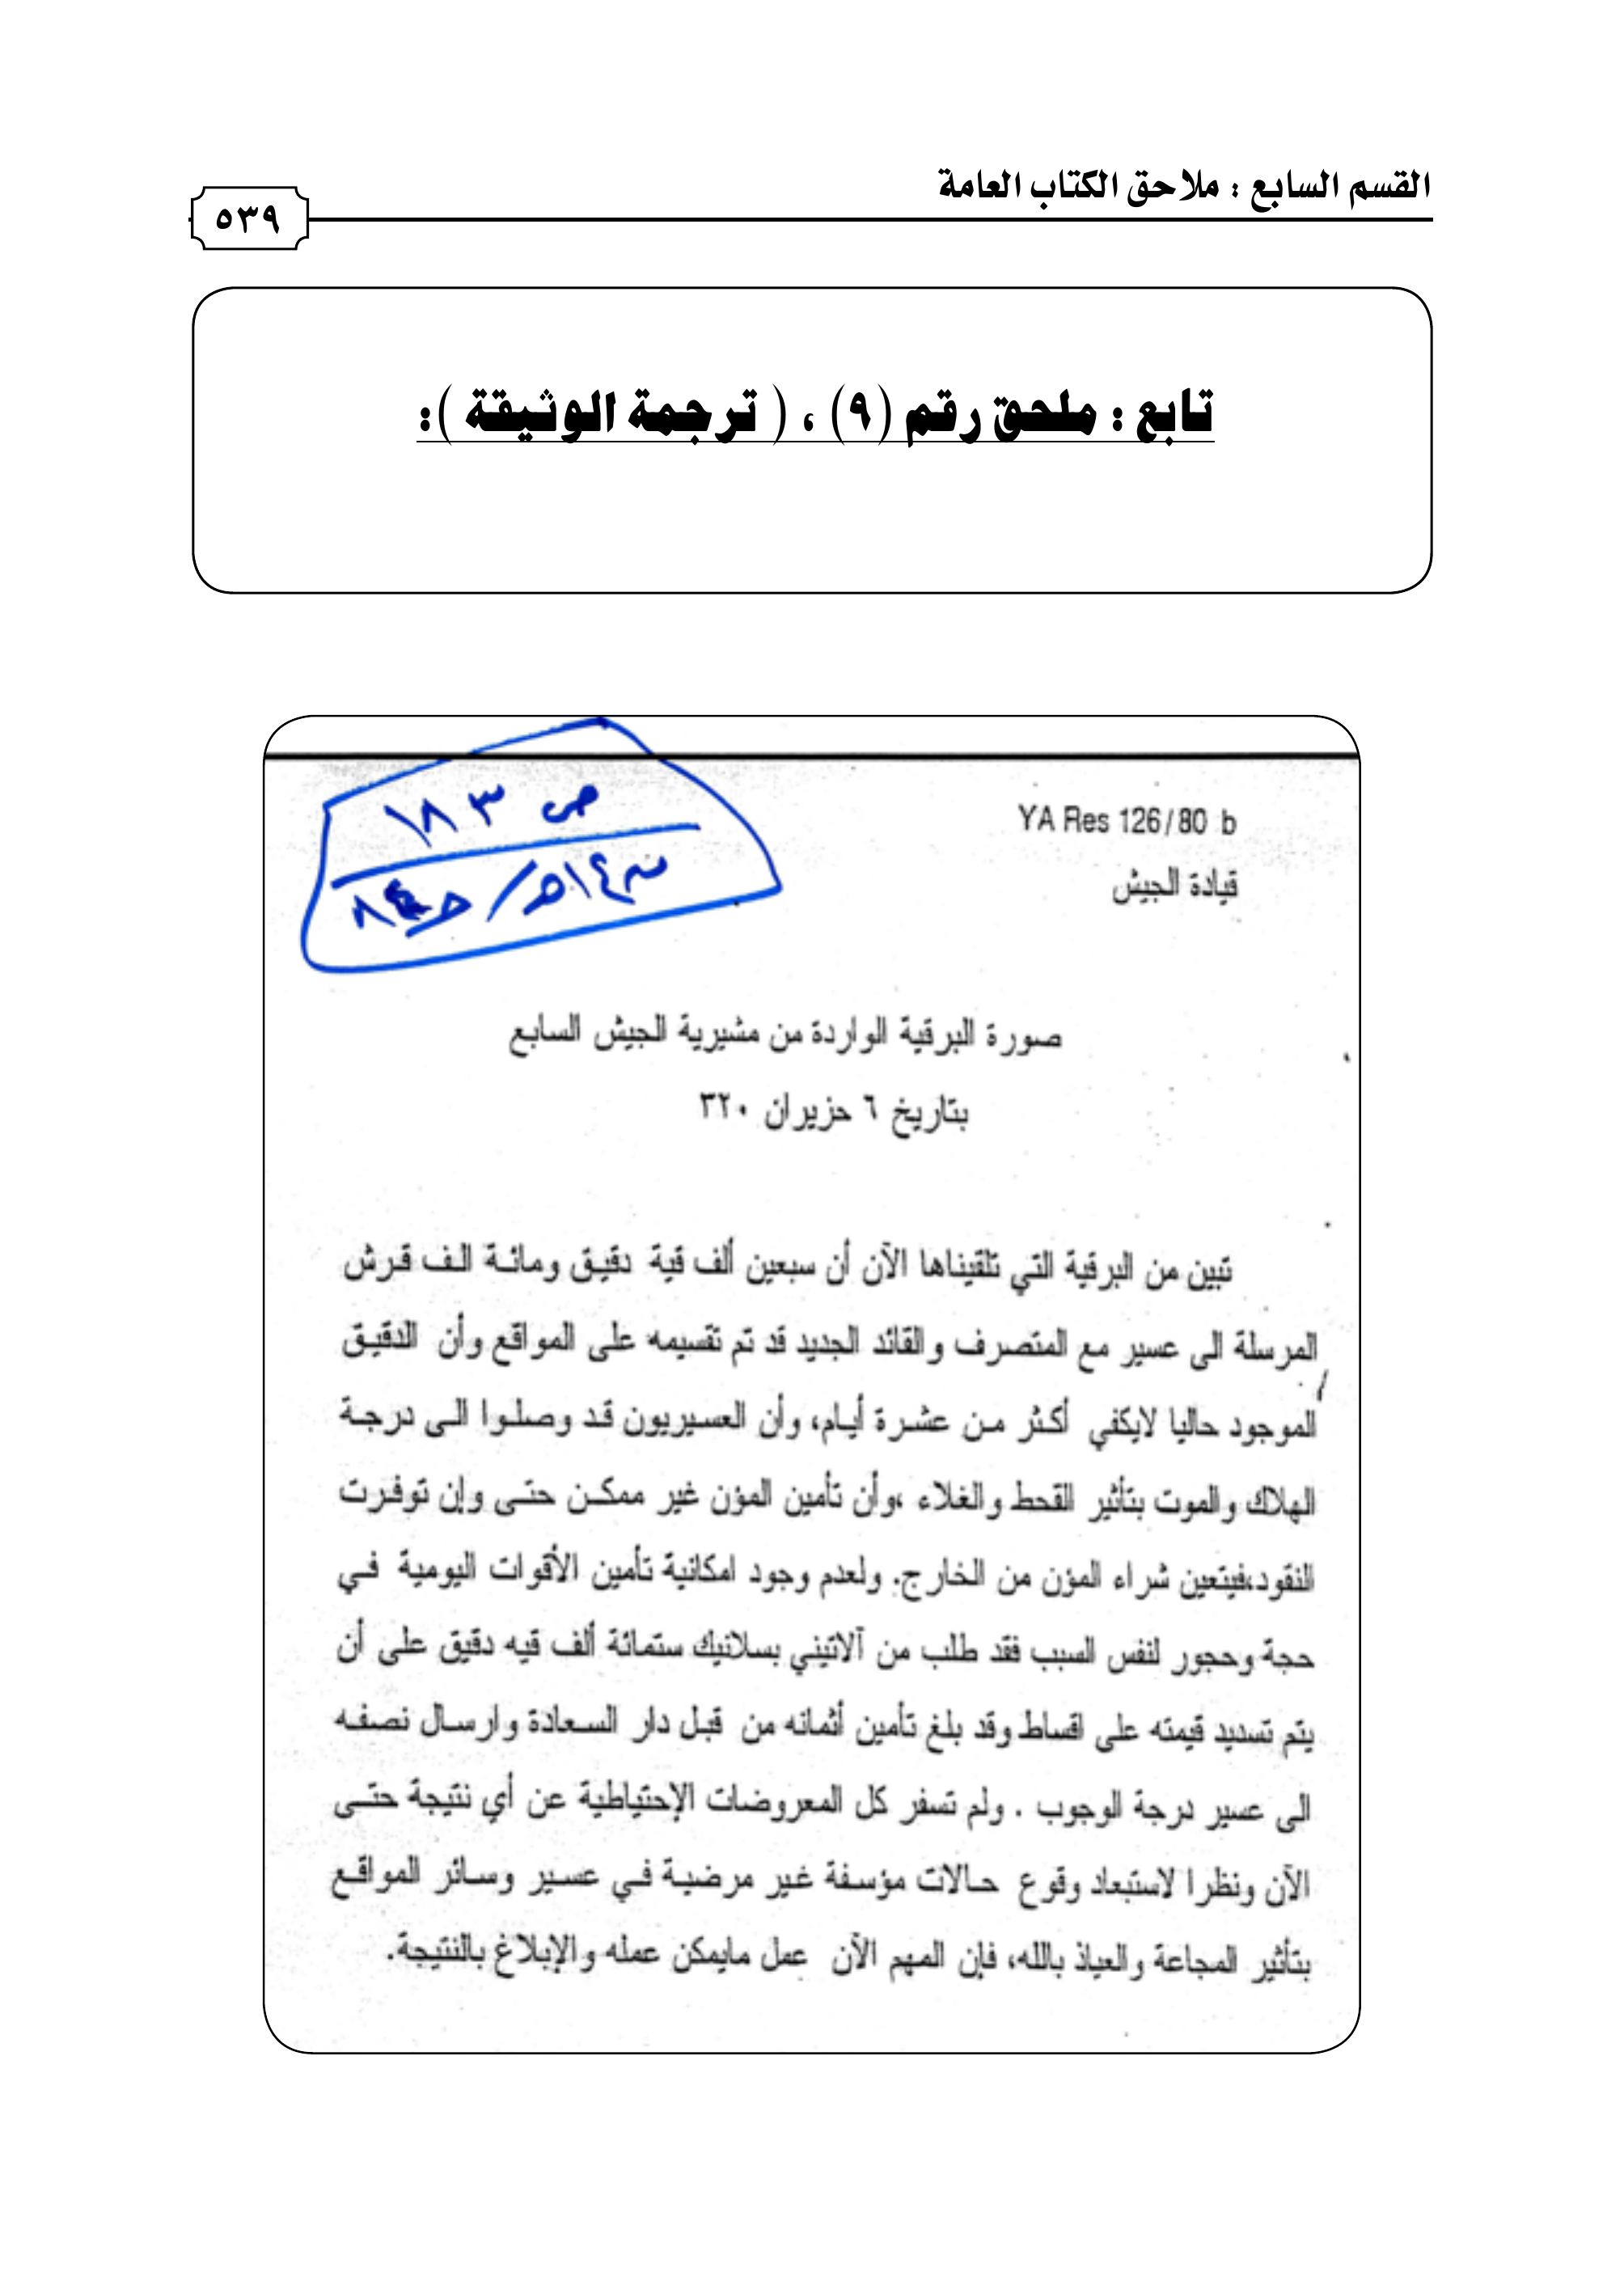 القسم السابع : ملاحق الكتاب العامة
٥٣٩
تابع : ملحق رقم (٩) ، ( ترجمة الوثيقة ):
ص ١٨٣
YA Res 126/80 b
قيادة الجيش
صورة البرقية الواردة من مشيرية الجيش السابع
بتاريخ ٦ حزيران ٣٢٠
تبين من البرقية التي تلقيناها الآن أن سبعين ألف قية دقيق ومائة الف قرش
المرسلة الى عسير مع المتصرف والقائد الجديد قد تم تقسيمه على المواقع وأن الدقيق
الموجود حاليا لايكفي أكثر من عشرة أيام، وأن العسيريون قد وصلوا الى درجة
الهلاك والموت بتأثير القحط والغلاء ،وأن تأمين المؤن غير ممكن حتى وإن توفرت
النقود،فيتعين شراء المؤن من الخارج. ولعدم وجود امكانية تأمين الأقوات اليومية في
حجة وحجور لنفس السبب فقد طلب من آلاتيني بسلانيك ستمائة ألف قيه دقيق على أن
يتم تسديد قيمته على اقساط وقد بلغ تأمين أثمانه من قبل دار السعادة وارسال نصفه
الى عسير درجة الوجوب . ولم تسفر كل المعروضات الإحتياطية عن أي نتيجة حتى
الآن ونظرا لاستبعاد وقوع حالات مؤسفة غير مرضية في عسير وسائر المواقع
بتأثير المجاعة والعياذ بالله، فإن المهم الآن عمل مايمكن عمله والإبلاغ بالنتيجة.